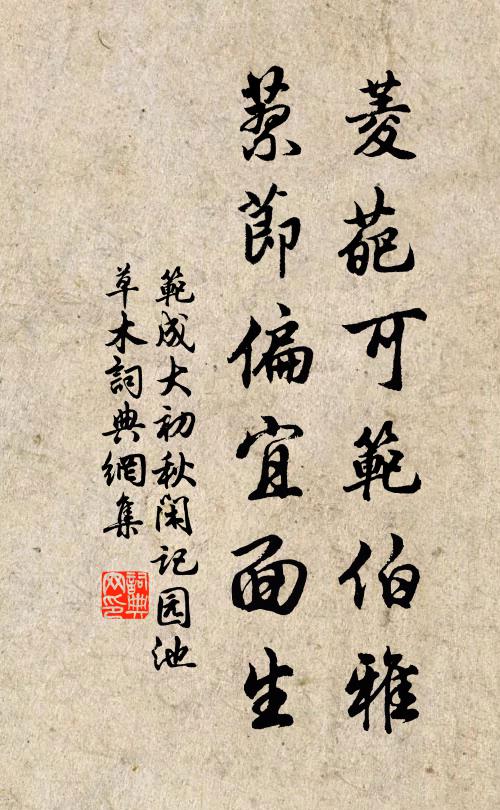 菱葩可範伯雅
藜節偏宜面生
範成大初秋闲记园池
草木詞典網集
詞典网印